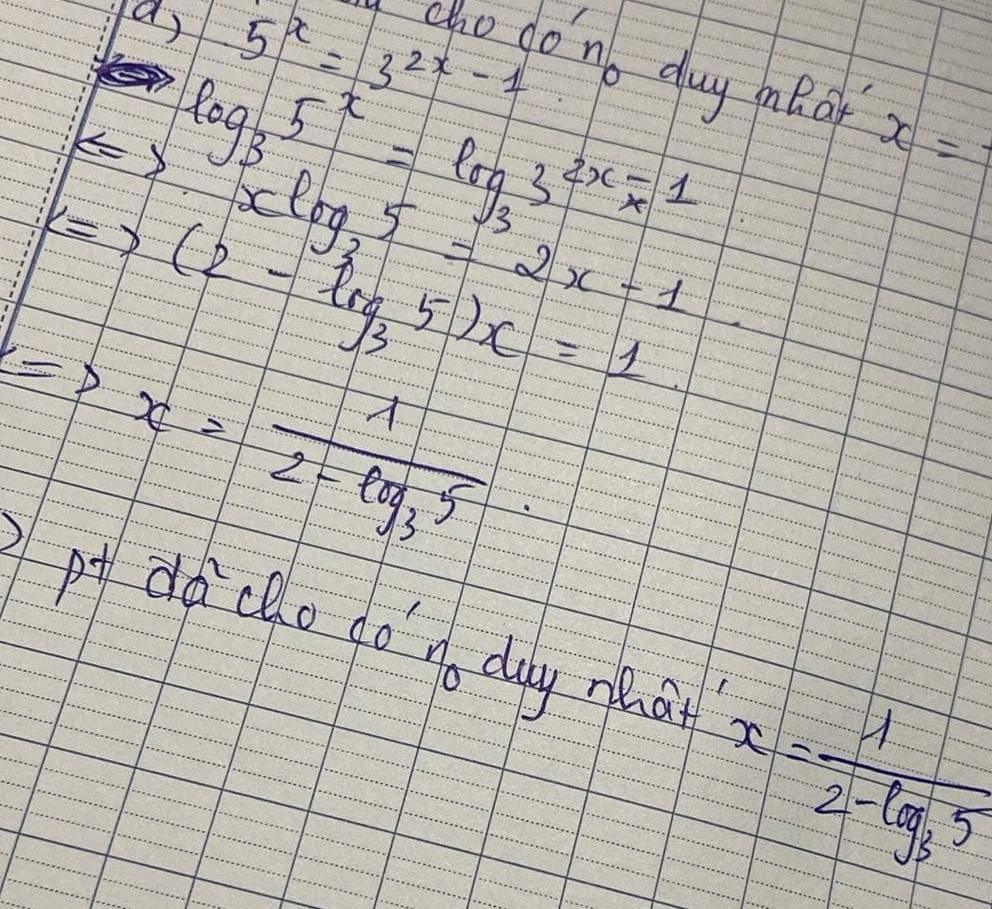 cho có n₀ duy nhất x =
d) 5^x = 3^{2x - 1}.
log₃ 5^x = log₃ 3^{2x - 1}.
<=> x log₃ 5 = 2x - 1.
<=> (2 - log₃ 5)x = 1.
<=> x = 1/(2 - log₃ 5).
pt đã cho có n₀ duy nhất x = 1/(2 - log₃ 5)